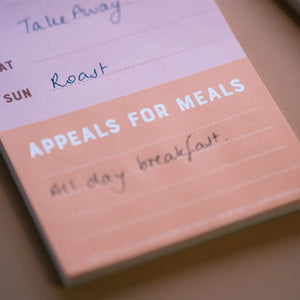 TakeAway.
AT
SUN Roast
APPEALS FOR MEALS
All day breakfast.